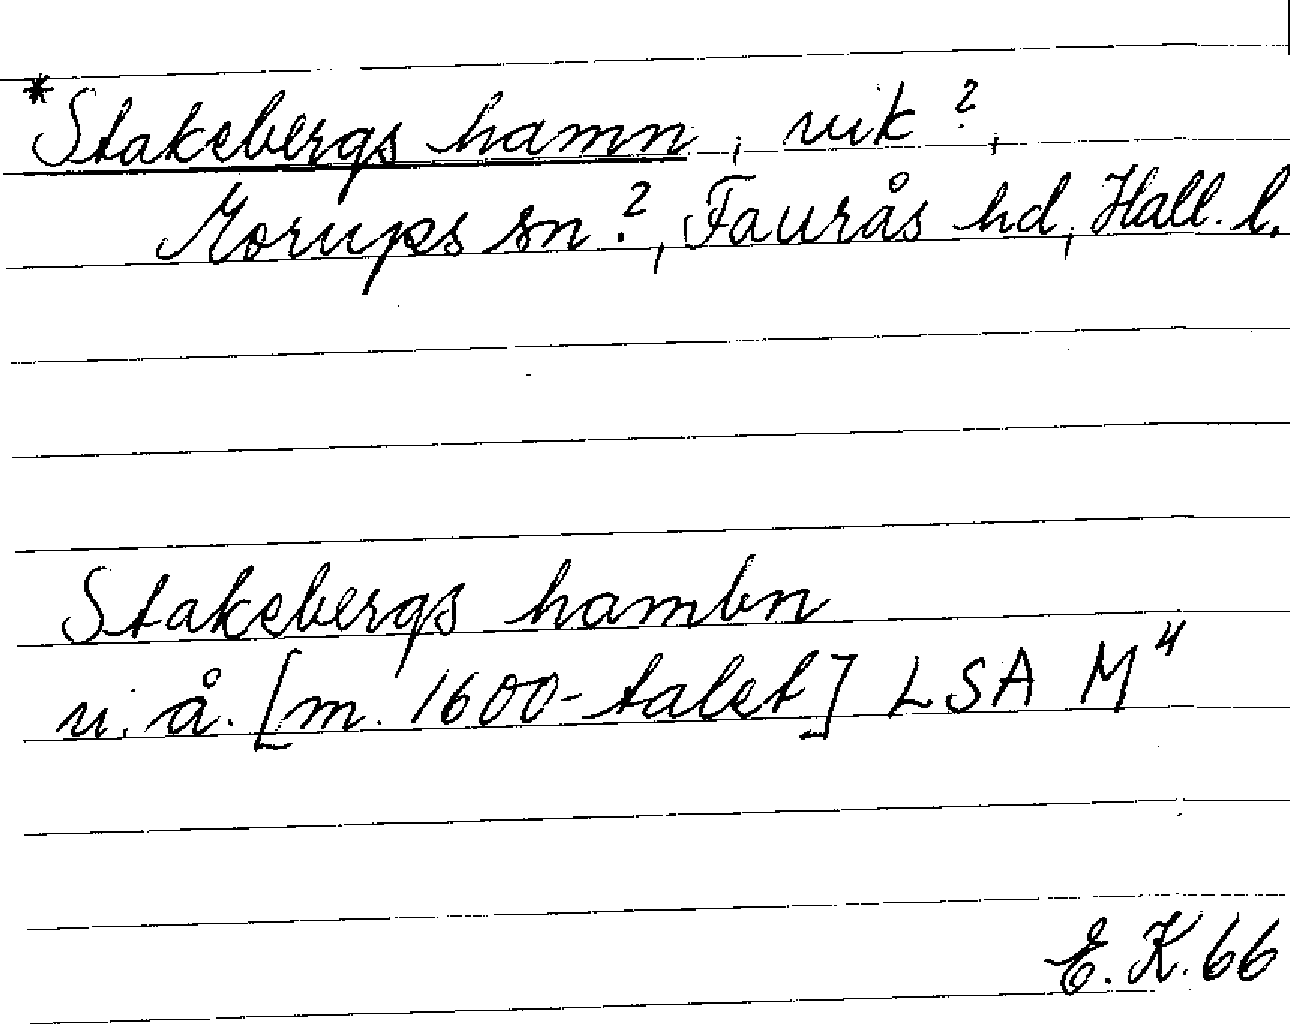 *Stakebergs hamn, vik?,
Morups sn?, Faurås hd, Hall. l.
Stakebergs hambn
u. å. [m. 1600-talet] LSA M"
E. K. 66